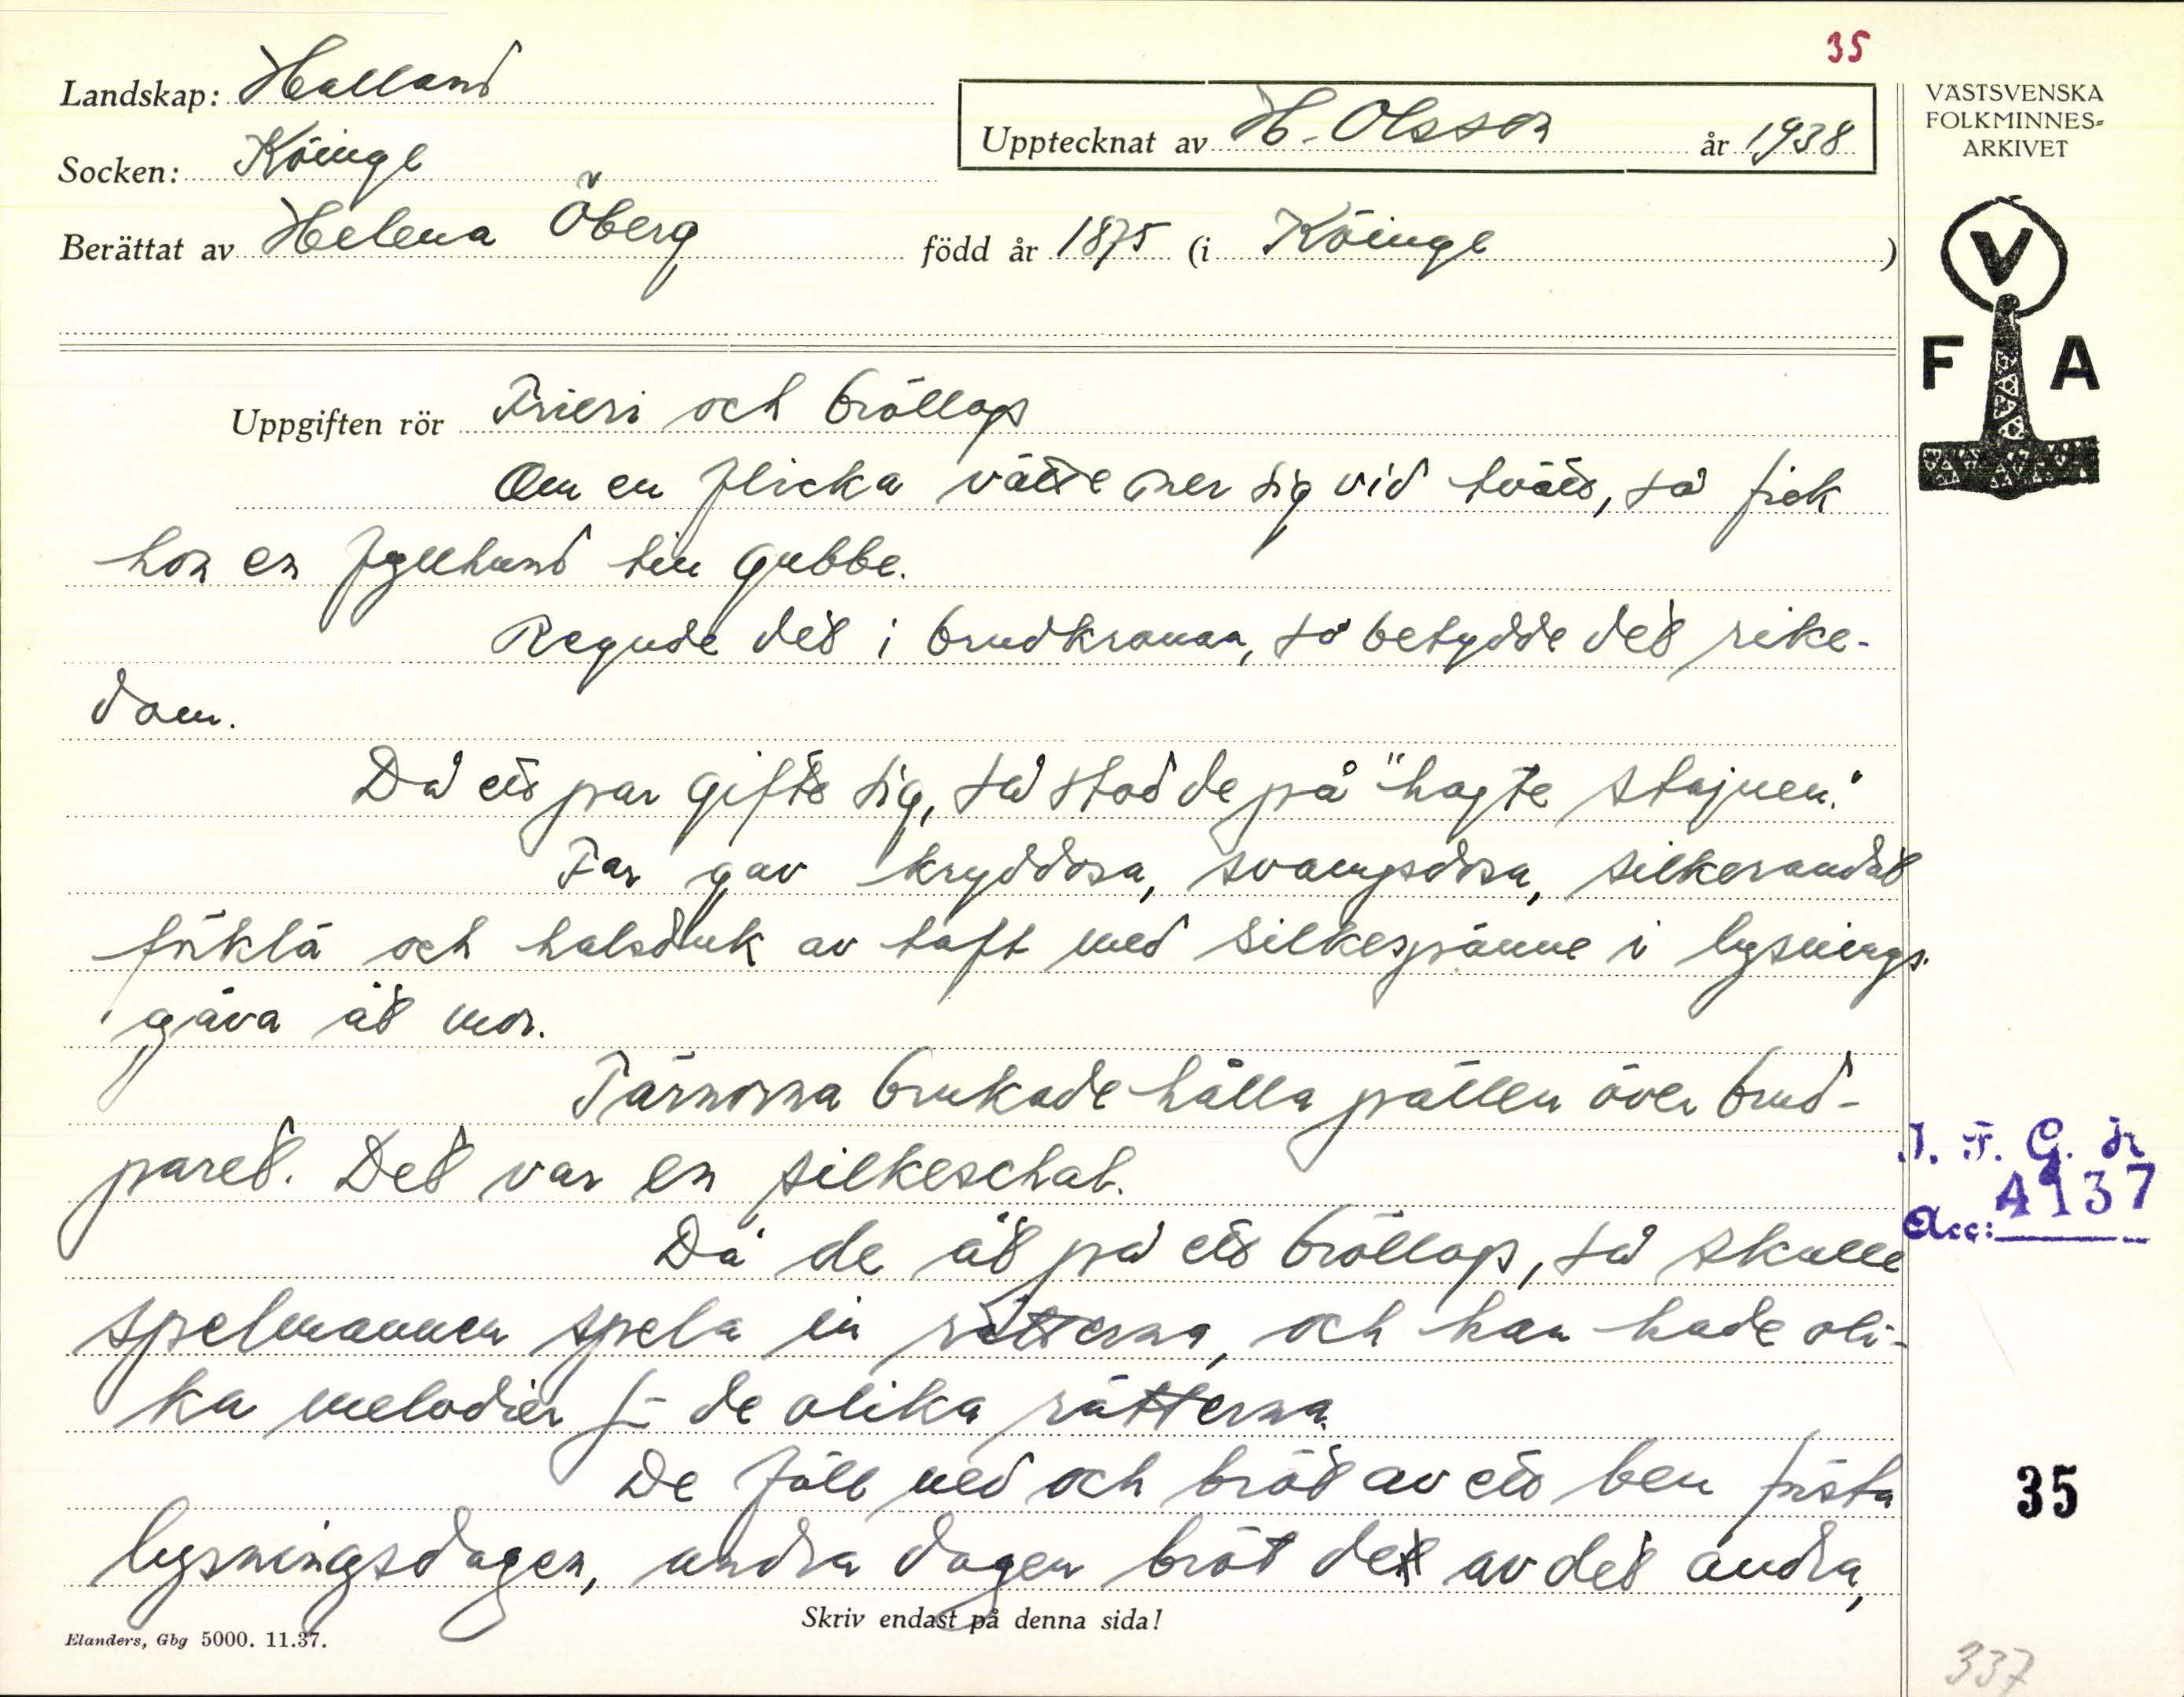 35
Landskap: Halland
Upptecknat av H. Olsson år 1938
VÄSTSVENSKA
FOLKMINNES-
ARKIVET
Socken: Köinge
Berättat av Helena Öberg född år 1875 (i Köinge)
V
F A
Uppgiften rör Frieri och bröllop
Om en flicka vätte ner sig vid tvätt, så fick
hon en fyllhund till gubbe.
Regnde det i brudkronan, så betydde det rike-
dom.
Då ett par gifte sig, så stod de på "högte stajnen."
Far gav kryddosa, svampdosa, silkerandat
förklä och halsduk av taft med silkespänne i lysnings-
gåva åt mor.
Tärnorna brukade hålla pällen över brud-
paret. Det var en silkeschal.
Då de åt på ett bröllop, så skulle
spelmannen spela in rätterna, och han hade oli-
ka melodier för de olika rätterna.
De föll ned och bröt av ett ben första
lysningsdagen, andra dagen bröt de av det andra,
I. F. G. sr
Acc: 4137
35
Skriv endast på denna sida!
Elanders, Gbg 5000. 11.37.
337